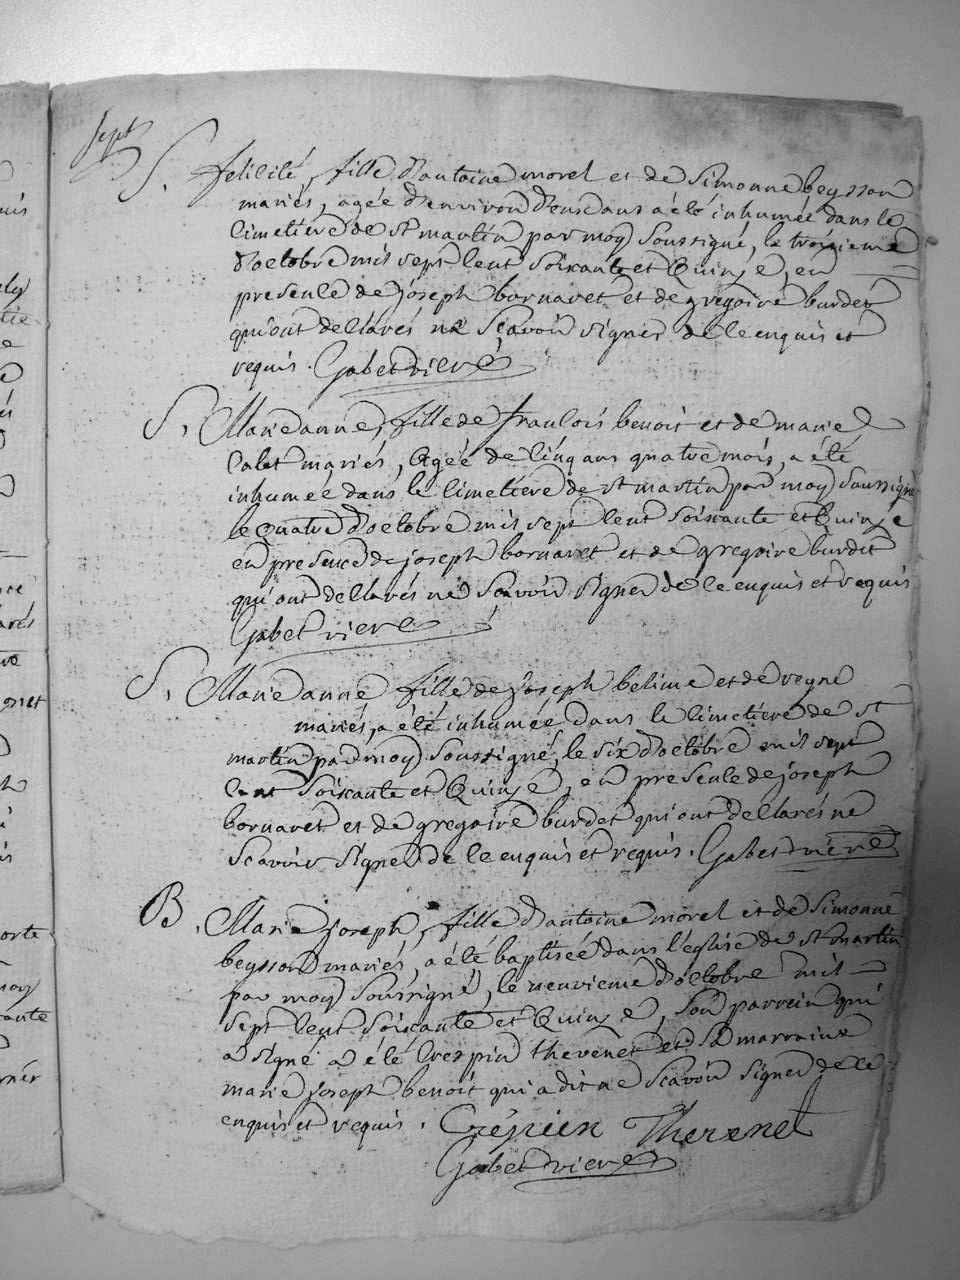 Sept
S. felicité, fille d'antoine morel et de Simonne beysson
mariés, agée d'environ deux ans a été inhumée dans le
Cimetiére de St martin par moy soussigné, le troisieme
d'octobre mil sept cent soixante et Quinze, en
presence de joseph bornaret et de gregoire burdet
qui ont declarés ne Scavoir signer de ce enquis et
requis. Gabet vicre
S. Marie anne, fille de francois benoit et de marie
Calet mariés, Agée de cinq ans quatre mois, a été
inhumée dans le Cimetiere de st martin par moy soussigné
le quatre d'octobre mil sept cent soixante et Quinze
en presence de joseph bornaret et de gregoire burdit
qui ont declarés ne Scavoir signer de ce enquis et requis
Gabet vicre
S. Marie anne fille de joseph belime et de reyne
mariés, a été inhumée dans le cimetiere de st
martin par moy soussigné, le six d'octobre mil sept
cent soixante et Quinze, en presence de joseph
bornaret et de gregoire burdet qui ont declarés ne
Scavoir signer de ce enquis et requis. Gabet vicre
B. Marie joseph, fille d'antoine morel et de Simonne
beysson mariés, a été baptisée dans l'église de st martin
par moy soussigné, le neuvieme d'octobre mil
sept cent soixante et Quinze, son parrein qui
a signé a été Crespin thevenet et sa marraine
marie joseph benoit qui a dit ne Scavoir signer de ce
enquis et requis. Crépien Thevenet
Gabet vicre